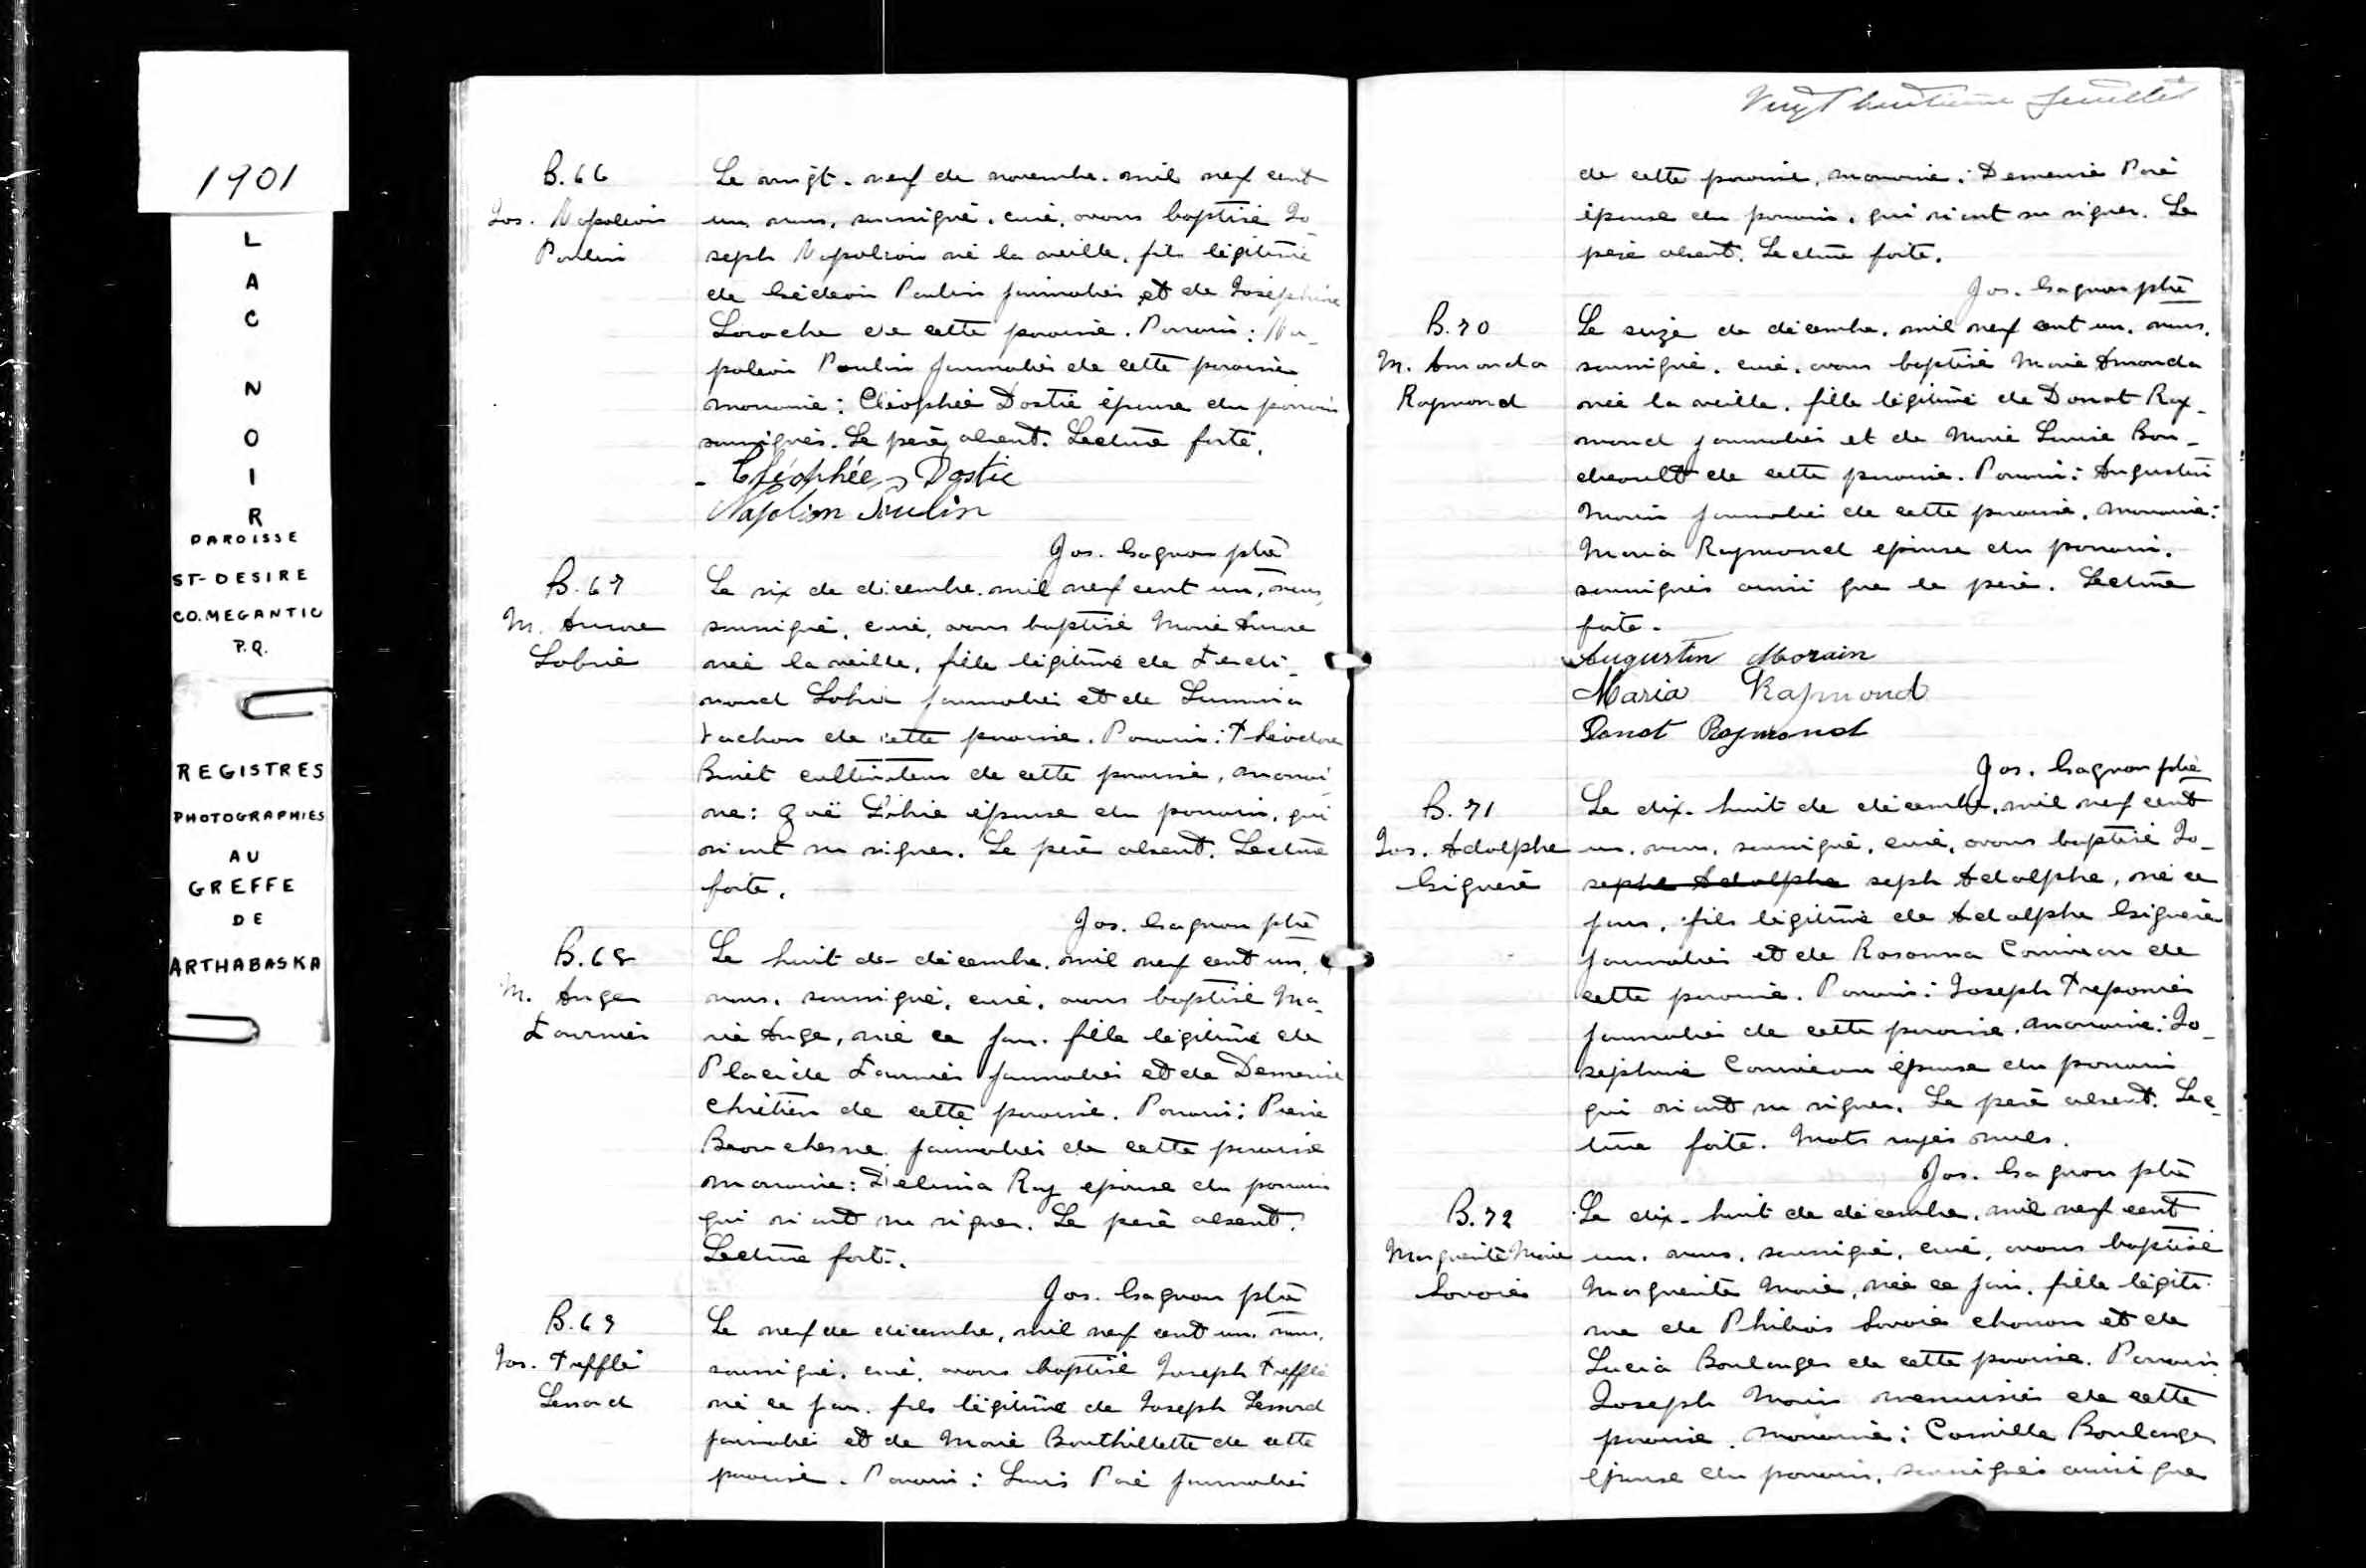 1901
L
A
C
N
O
I
R
PAROISSE
ST-DESIRE
CO. MEGANTIC
P.Q.
REGISTRES
PHOTOGRAPHIES
AU
GREFFE
DE
ARTHABASKA
B. 66
Jos. Napoléon
Poulin
Le vingt-neuf de novembre, mil neuf cent
un, nous, soussigné, curé, avons baptisé Jo-
seph Napoléon né la veille, fils légitime
de Gédéon Poulin journalier et de Joséphine
Laroche de cette paroisse. Parrain: Na-
poléon Poulin journalier de cette paroisse
marraine: Cléophée Dostie épouse du parrain
soussignés. Le père absent. Lecture faite.
Cléophée Dostie
Napoléon Poulin
Jos. Gagnon ptre
B. 67
M. Aurore
Labrie
Le six de décembre, mil neuf cent un, nous,
soussigné, curé, avons baptisé Marie Aurore
née la veille, fille légitime de Ferdi-
nand Labrie journalier et de Lumina
Vachon de cette paroisse. Parrain: Théodore
Binet cultivateur de cette paroisse, marrai-
ne: Zoë Labrie épouse du parrain, qui
n'ont su signer. Le père absent. Lecture
faite.
Jos. Gagnon ptre
B. 68
M. Ange
Fournier
Le huit de décembre, mil neuf cent un,
nous, soussigné, curé, avons baptisé Ma-
rie Ange, née ce jour, fille légitime de
Placide Fournier journalier et de Demerise
Chrétien de cette paroisse. Parrain: Pierre
Beauchesne journalier de cette paroisse
marraine: Délima Roy épouse du parrain
qui n'ont su signer. Le père absent.
Lecture faite.
Jos. Gagnon ptre
B. 69
Jos. Trefflé
Lessard
Le neuf de décembre, mil neuf cent un, nous,
soussigné, curé, avons baptisé Joseph Trefflé
né ce jour, fils légitime de Joseph Lessard
journalier et de Marie Bouthillette de cette
paroisse. Parrain: Louis Paré journalier
Vingt huitième feuillet
de cette paroisse, marraine: Demerise Paré
épouse du parrain, qui n'ont su signer. Le
père absent. Lecture faite.
Jos. Gagnon ptre
B. 70
M. Amanda
Raymond
Le seize de décembre, mil neuf cent un, nous,
soussigné, curé, avons baptisé Marie Amanda
née la veille, fille légitime de Donat Ray-
mond journalier et de Marie Louise Bou-
cheault de cette paroisse. Parrain: Augustin
Morin journalier de cette paroisse, marraine:
Maria Raymond épouse du parrain,
soussignés ainsi que le père. Lecture
faite.
Augustin Morain
Maria Raymond
Donat Raymond
Jos. Gagnon ptre
B. 71
Jos. Adolphe
Giguère
Le dix-huit de décembre, mil neuf cent
un, nous, soussigné, curé, avons baptisé Jo-
seph Adolphe seph Adolphe, né ce
jour, fils légitime de Adolphe Giguère
journalier et de Rosanna Comeau de
cette paroisse. Parrain: Joseph Trépanier
journalier de cette paroisse, marraine: Jo-
sephine Comeau épouse du parrain
qui n'ont su signer. Le père absent. Lec-
ture faite. Mots rayés nuls.
Jos. Gagnon ptre
B. 72
Marguerite Marie
Savoie
Le dix-huit de décembre, mil neuf cent
un, nous, soussigné, curé, avons baptisé
Marguerite Marie, née ce jour, fille légiti-
me de Philias Savoie charron et de
Lucia Boulanger de cette paroisse. Parrain
Joseph Morin menuisier de cette
paroisse, marraine: Camille Boulanger
épouse du parrain, soussignés ainsi que